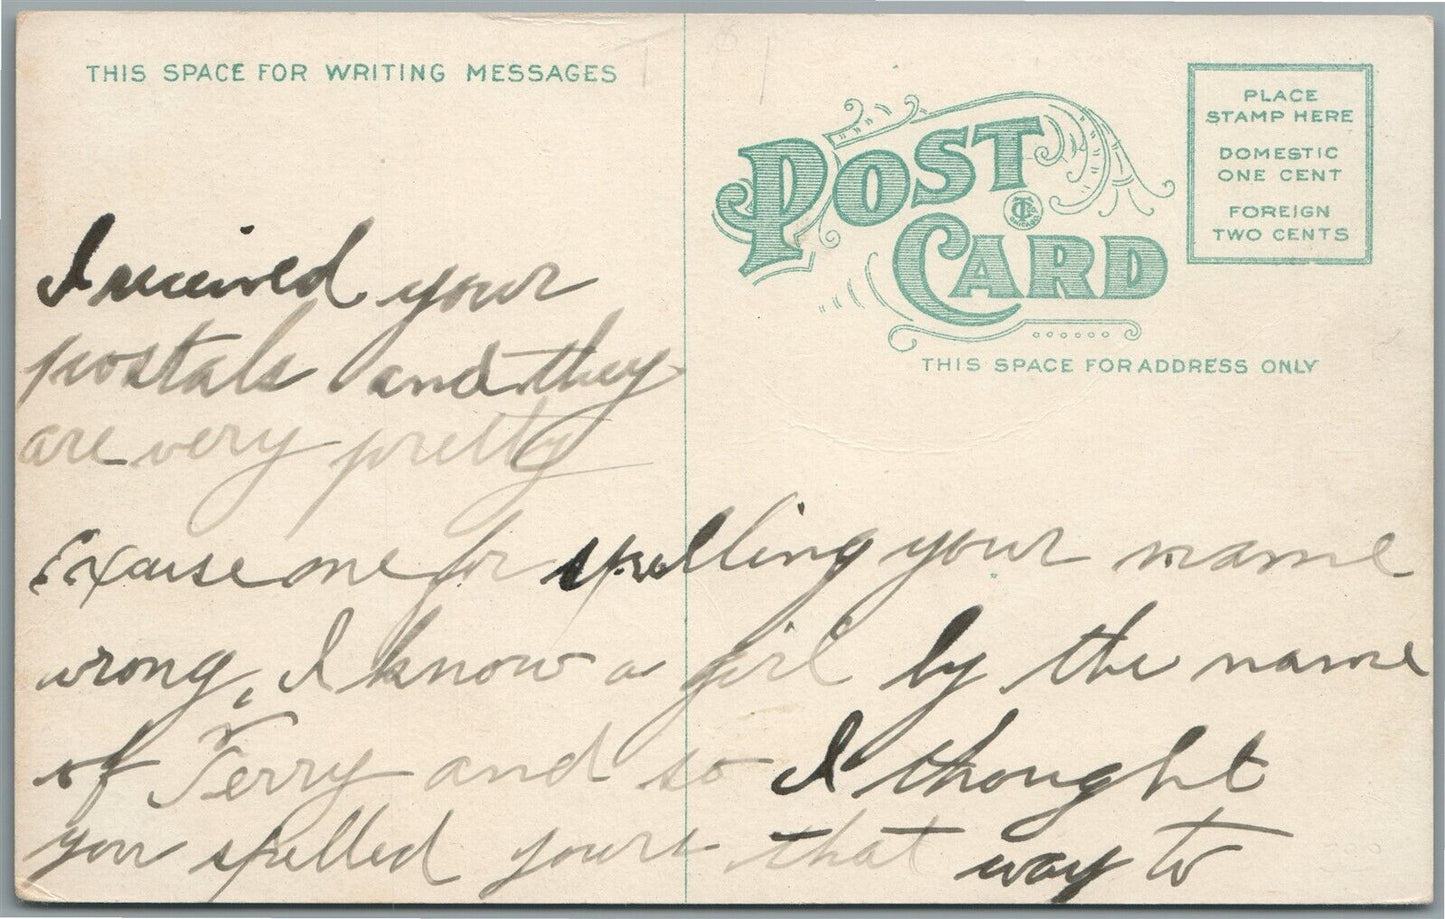 THIS SPACE FOR WRITING MESSAGES
POST CARD
PLACE
STAMP HERE
DOMESTIC
ONE CENT
FOREIGN
TWO CENTS
THIS SPACE FOR ADDRESS ONLY
I received your
postals and they
are very pretty
Excuse me for spelling your name
wrong, I know a girl by the name
of Terry and so I thought
you spelled yours that way to